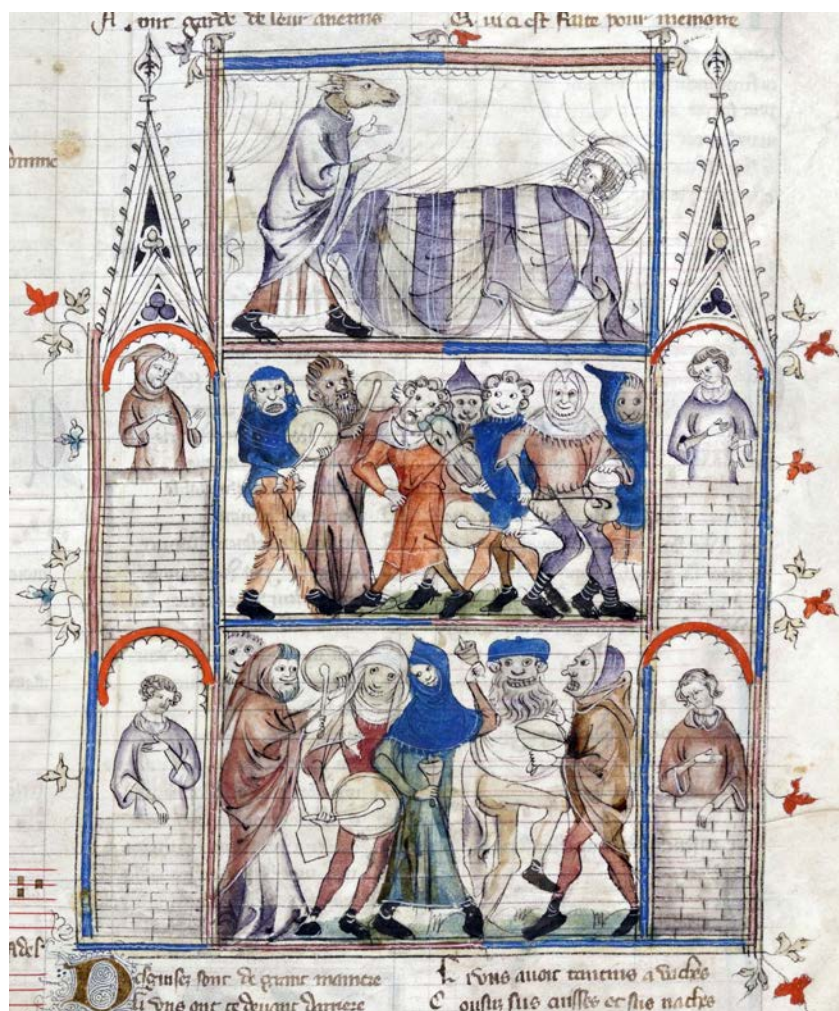 ont garde de leur anemis
Q ui ci est faite pour memoire
Desguisez sont de grant maniere
Li uns ont ce devant darriere
L i uns avoit tantins a vaches
C ousuz sus cuisses et sus naches